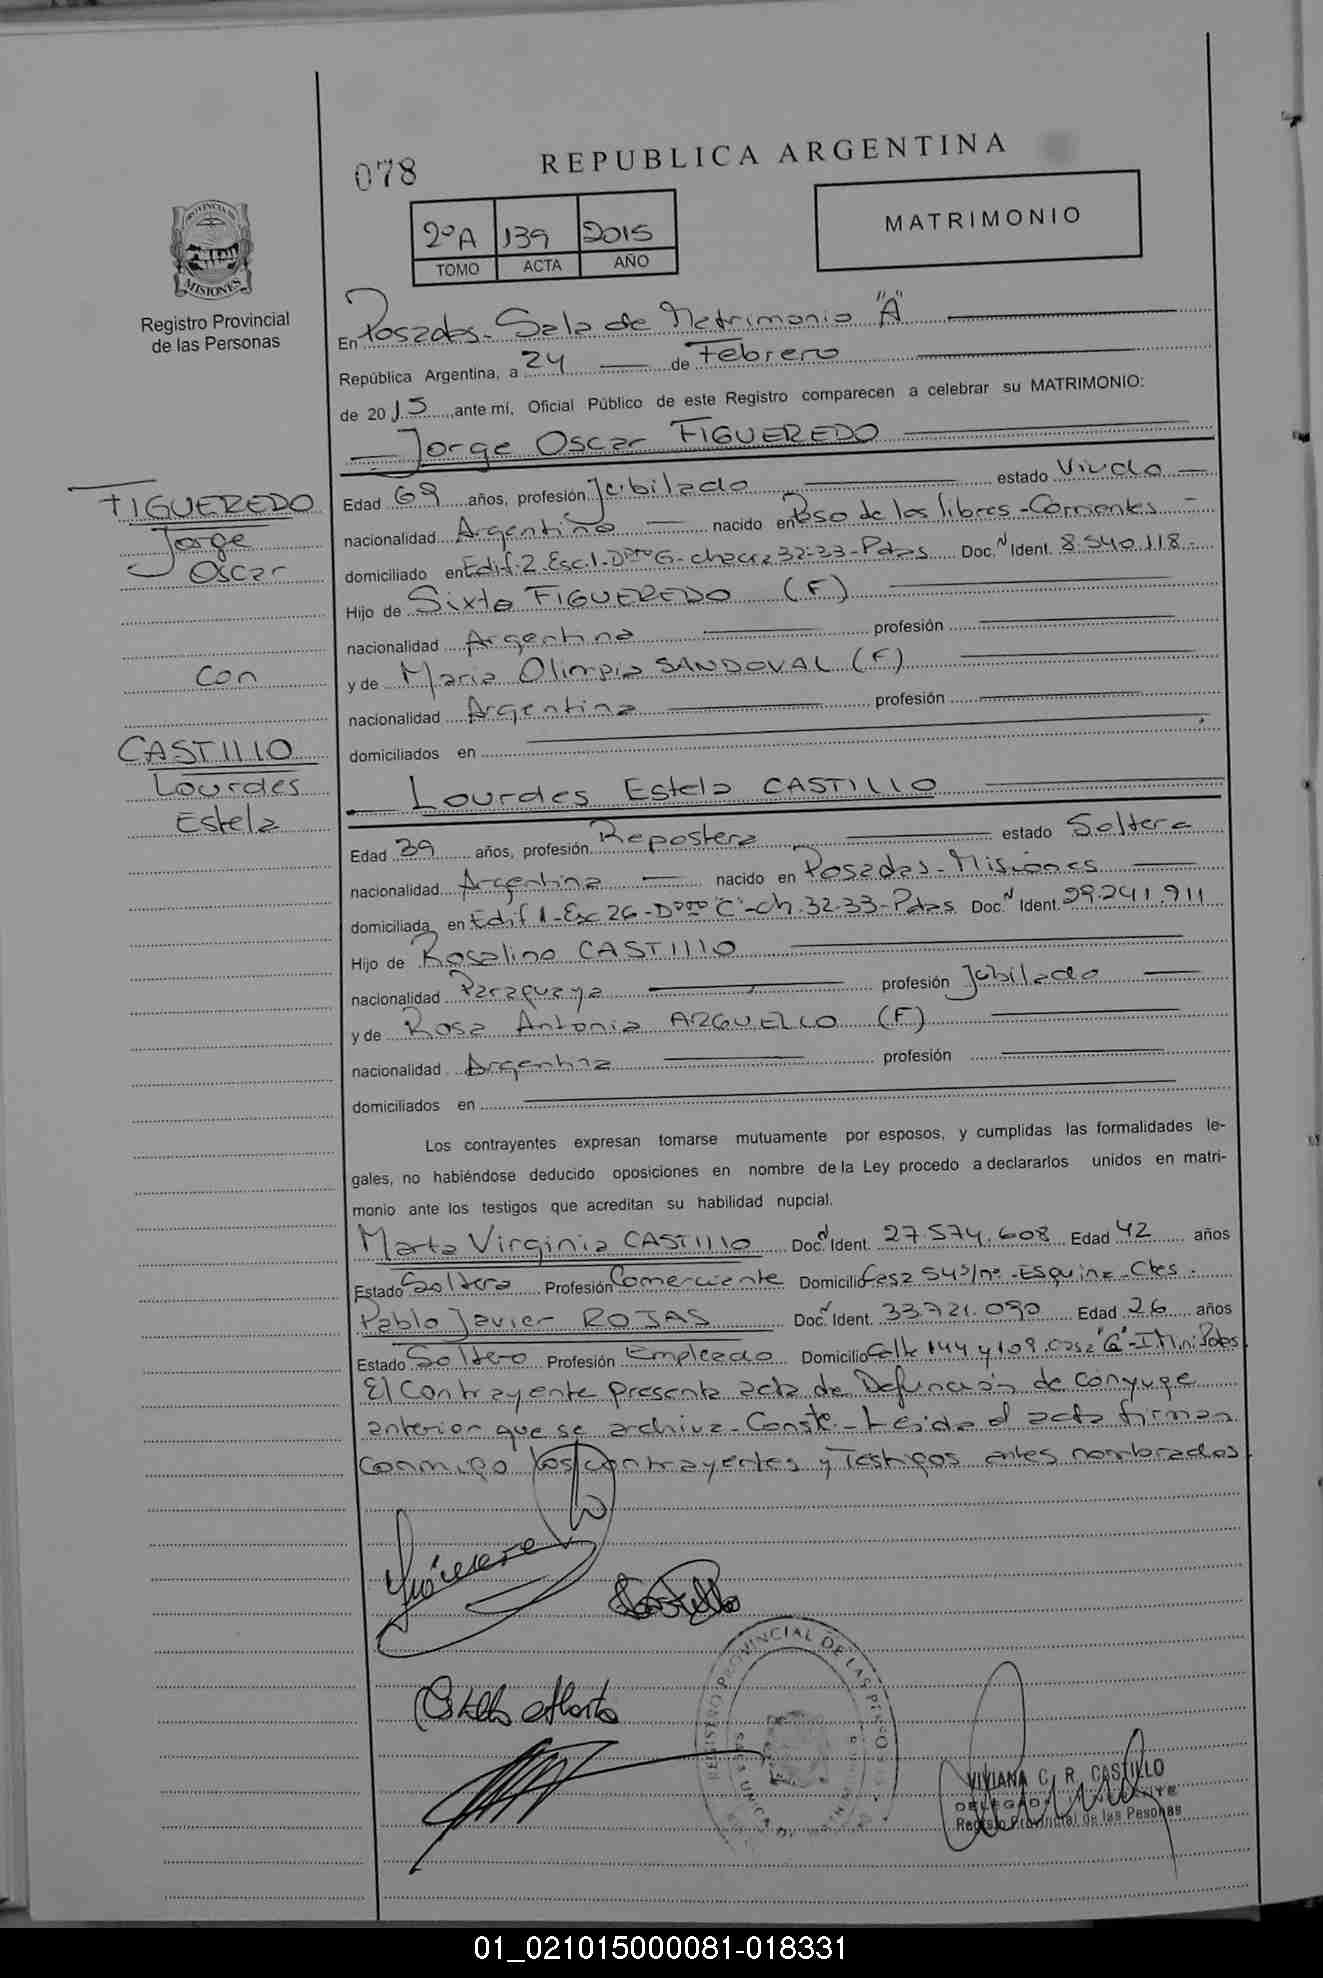 078
REPUBLICA ARGENTINA
2ºA 139 2015
TOMO ACTA AÑO
MATRIMONIO
PROVINCIA DE
MISIONES
Registro Provincial
de las Personas
En Posadas - Sala de Matrimonio "A"
República Argentina, a 24 de Febrero
de 2015 ante mí, Oficial Público de este Registro comparecen a celebrar su MATRIMONIO:
Jorge Oscar FIGUEREDO
FIGUEREDO
Jorge
Oscar
con
CASTILLO
Lourdes
Estela
Edad 69 años, profesión Jubilado estado Viudo
nacionalidad Argentino nacido en Paso de los libres - Corrientes -
domiciliado en Edif. 2 Esc. 1 - Dpto G - chacra 32-33 - Pdas Doc. N Ident. 8.540.118 -
Hijo de Sixto FIGUEREDO (F)
nacionalidad Argentina profesión
y de Maria Olimpia SANDOVAL (F)
nacionalidad Argentina profesión
domiciliados en
Lourdes Estela CASTILLO
Edad 39 años, profesión Repostera estado Soltera
nacionalidad Argentina nacido en Posadas - Misiones
domiciliada en Edif 1 - Esc 26 - Dpto "C" - ch. 32-33 - Pdas Doc. N Ident. 29.241.911
Hijo de Rosalino CASTILLO
nacionalidad Paraguaya profesión Jubilado
y de Rosa Antonia ARGUELLO (F)
nacionalidad Argentina profesión
domiciliados en
Los contrayentes expresan tomarse mutuamente por esposos, y cumplidas las formalidades le-
gales, no habiéndose deducido oposiciones en nombre de la Ley procedo a declararlos unidos en matri-
monio ante los testigos que acreditan su habilidad nupcial.
Marta Virginia CASTILLO Doc. Ident. 27.574.608 Edad 42 años
Estado Soltera Profesión Comerciante Domicilio Casa 54 s/nº - Esquina - Ctes.
Pablo Javier ROJAS Doc. Ident. 33.721.090 Edad 26 años
Estado Soltero Profesión Empleado Domicilio Calle 144 y 109. Casa Pdas
El Contrayente presenta acta de Defunción de cónyuge
anterior que se archiva - Conste - Leida el acta firman
conmigo los contrayentes y Testigos antes nombrados
Castillo Marta
REGISTRO PROVINCIAL DE LAS PERSONAS
VIVIANA C. R. CASTILLO
Registro Provincial de las Pesonas
01_021015000081-018331